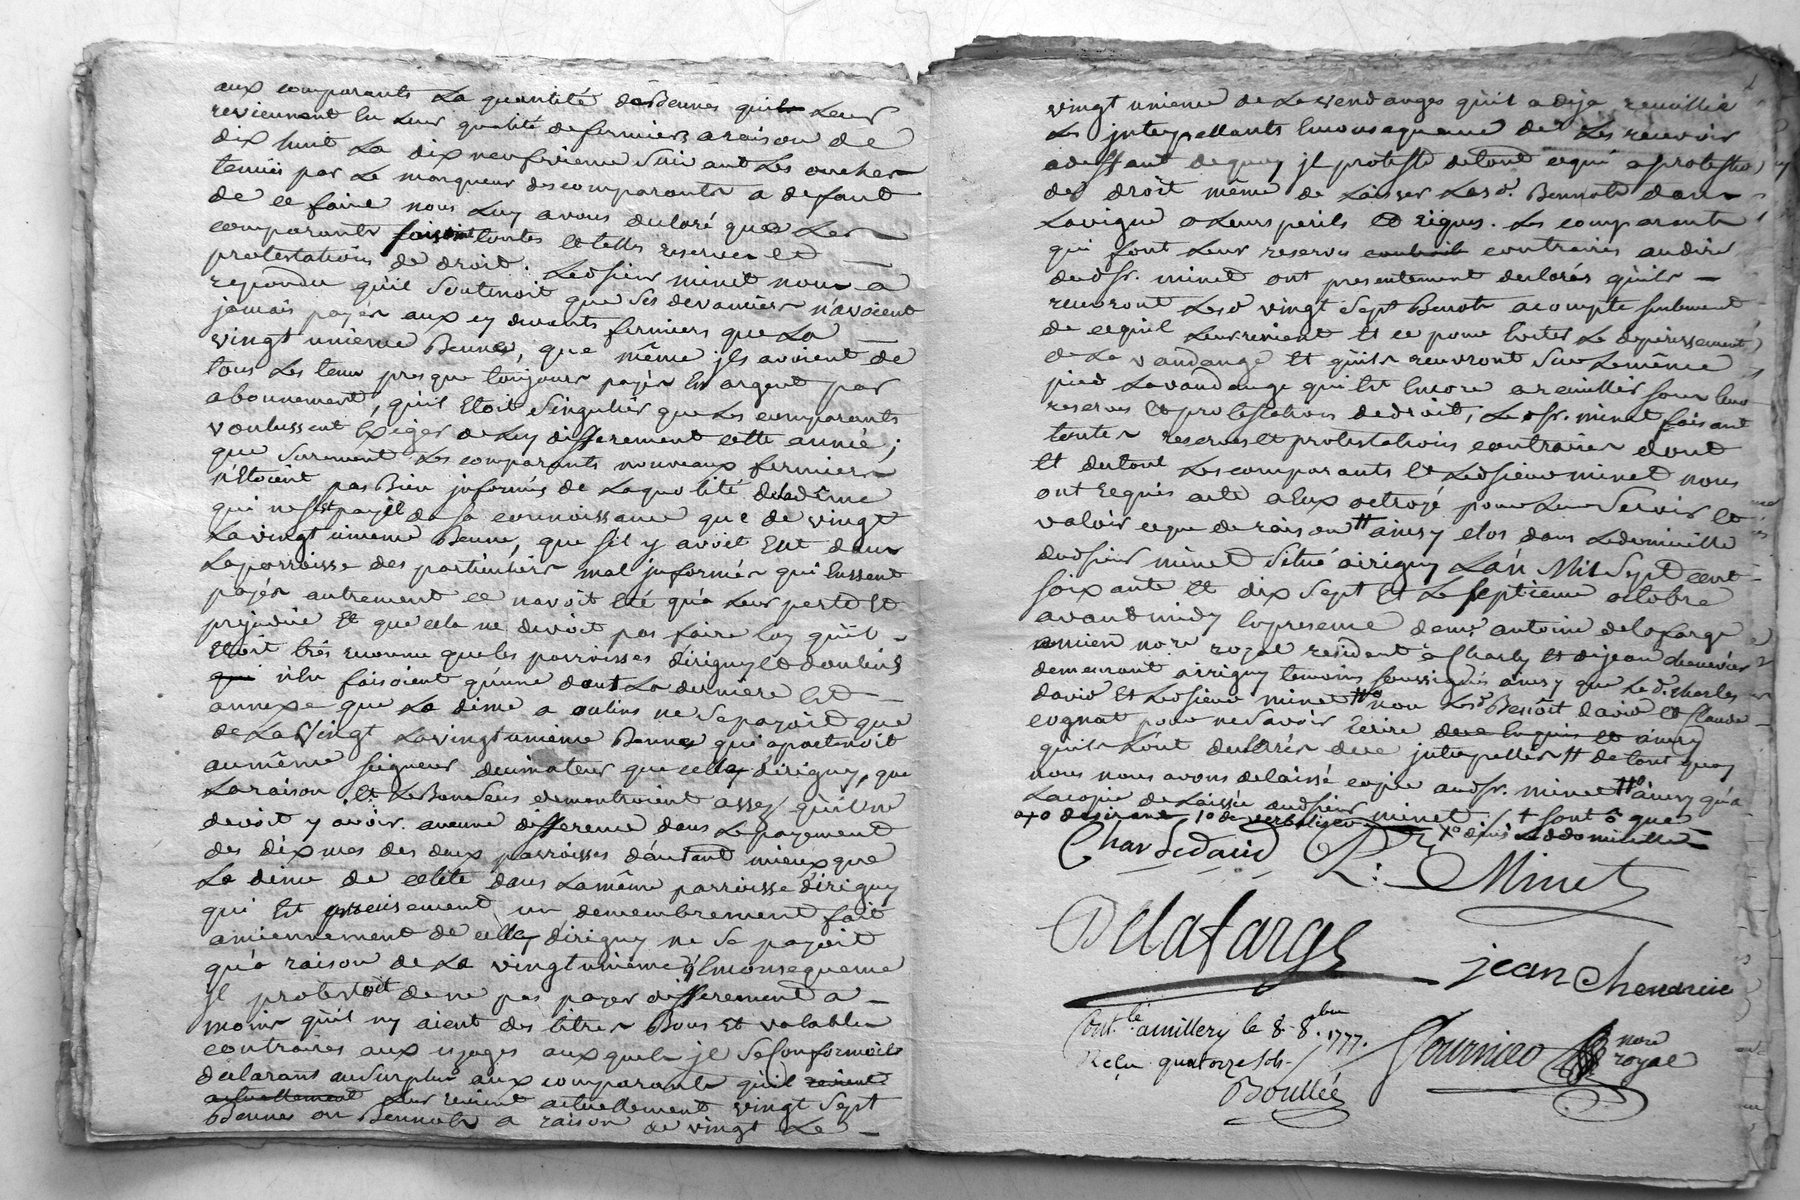 aux comparants La quantité de Bennes qui Leur
reviennent en Leur qualité de fermiers a raison de
dix huit La dix neufvieme suivant Les ouches
tenües par Le marqueur des comparants a defaut
de ce faire nous Luy avons declaré que Les
comparants faisoient toutes et telles reserves et
protestations de droit. Ledsieur minet nous a
repondu qu'il soutenoit que ses devanciers n'avoient
jamais payés aux cy devants fermiers que La
vingt unieme Bennes, que même jls avoient de
tous Les tems presque toujours payés en argent par
abonnement, qu'il Etoit singulier que Les comparants
voulussent Exiger de Luy differement cette année;
que surement Les comparants nouveaux fermiers
n'Etoient pas Bien jnformés de La quotité de la dime
qui ne s'est payée de sa connoissance que de vingt
La vingt unieme Benne, que s'il y avoit Eut dans
La parroisse des particuliers mal jnformés qui Eussent
payés autrement ce n'avoit Eté qu'a Leur perte et
prejudice Et que cela ne devoit pas faire Loy qu'il
Etoit très reconnu que les parroisses d'irigny et d'oulins
n'En faisoient qu'une dont La derniere Est
annexe que La dime a oulins ne se payoit que
de La vingt La vingt unieme Bennes qui apartenoit
au même seigneur decimateur que celle d'irigny, que
La raison Et Le Bon sens demontroient assez qu'il ne
devoit y avoir aucune difference dans Le payement
des dixmes des deux parroisses d'autant mieux que
La dime de celité dans La même parroisse d'irigny
qui Est precisement un demembrement fait
anciennement de celle d'irigny ne se payoit
qu'a raison de La vingt unieme qu'En consequence
jl protestoit de ne pas payer differement a
moins qu'il n'y aient des titres Bons Et valables
contraires aux usages auxquels jl se conformoit
declarant au surplus aux comparants qu'il revient
actuellement Leur revient actuellement vingt sept
Bennes ou Bennots a raison de vingt Le
vingt unieme de Les vendanges qu'il a deja receuillie
Les jnterpellants En consequence de Les recevoir
a deffaut de quoy jl proteste de tout ce qui a protester
de droit même de Laisser Lesd. Bennots dans
La vigne a Leurs perils et risques. Les comparants
qui font Leur reserves contraires au dire
dudsr. minet ont presentement declarés qu'ils
recevront Lesd vingt sept Bennots a compte seulement
de ce qu'il Leur revient Et ce pour Eviter Le deperissement
de La vandange Et qu'ils recevront sur Le même
pied La vandange qui Est Encore a receuillir sous Leurs
reserves Et protestations de droit, Ledsr. minet faisant
toutes reserves et protestations contraires dont
Et du tout Les comparants Et Ledsieur minet nous
ont requis acte a Eux octroyé pour Leur servir Et
valoir ce que de raison # ainsy clos dans Le domicille
dudsieur minet situé a irigny L'an Mil Sept cent
soixante Et dix sept Et Le septieme octobre
avant midy En presence de me. antoine delafarge
ancien nore royal resident a Charly Et de jean chenevier
demeurant a irigny temoins soussignés ainsy que Le d. charles
david Et Ledsieur minet # non Lesd Benoit david Et Claude
cognat pour ne savoir Ecrire de ce Enquis et ainsy
qu'ils L'ont declarés de ce jnterpellés # de tout quoy
nous nous avons delaissé copie audsr. minet # ainsy qu'a
La copie delaissée audsieur minet. / + sont o que
Charle david P: Minet
Delafarge
jean Chenevier
Contlé. a millery le 8. 8bre 1777.
Reçu quatorze sols
Boullée
Fournier nore royal